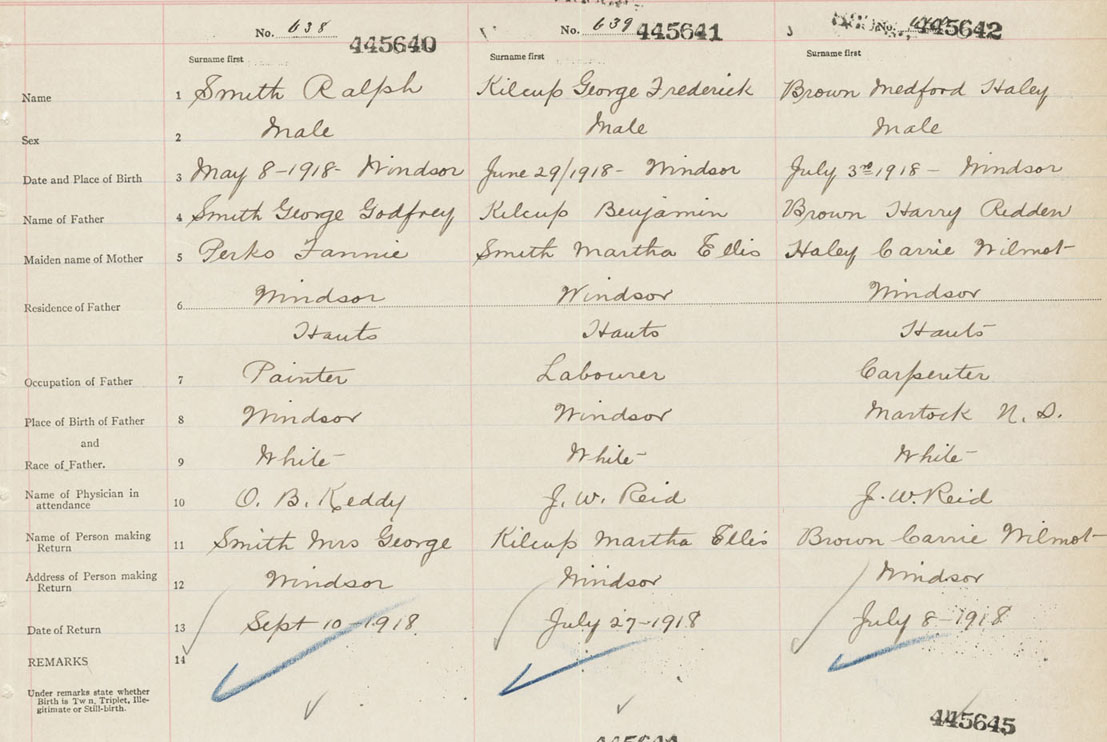 No. 638 445640 No. 639 445641 No. 445642
Surname first Surname first Surname first
Name 1 Smith Ralph Kilcup George Frederick Brown Medford Haley
Sex 2 Male Male Male
Date and Place of Birth 3 May 8-1918- Windsor June 29/1918- Windsor July 3rd 1918 - Windsor
Name of Father 4 Smith George Godfrey Kilcup Benjamin Brown Harry Redden
Maiden name of Mother 5 Perko Fannie Smith Martha Ellis Haley Carrie Wilmot
Residence of Father 6 Windsor Windsor Windsor
Hants Hants Hants
Occupation of Father 7 Painter Labourer Carpenter
Place of Birth of Father 8 Windsor Windsor Martock N. S.
and
Race of Father. 9 White White White
Name of Physician in
attendance 10 O. B. Keddy J. W. Reid J. W. Reid
Name of Person making
Return 11 Smith Mrs George Kilcup Martha Ellis Brown Carrie Wilmot
Address of Person making
Return 12 Windsor Windsor Windsor
Date of Return 13 Sept 10-1918. July 27-1918 July 8-1918
REMARKS 14
Under remarks state whether
Birth is Tw n, Triplet, Ille-
gitimate or Still-birth.
445645